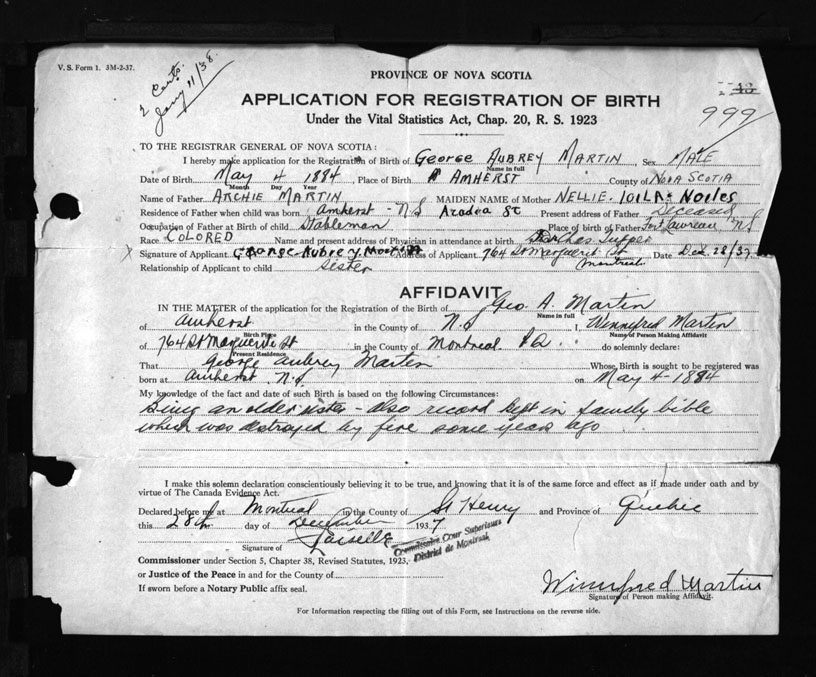 V. S. Form 1. 3M-2-37.
2 Cents.
Jany 11/38.
PROVINCE OF NOVA SCOTIA
APPLICATION FOR REGISTRATION OF BIRTH
999
Under the Vital Statistics Act, Chap. 20, R. S. 1923
TO THE REGISTRAR GENERAL OF NOVA SCOTIA:
I hereby make application for the Registration of Birth of George AUBREY MARTIN, Sex MALE
Name in full
Date of Birth MAY 4 1884, Place of Birth AMHERST County of NOVA SCOTIA
Month Day Year
Name of Father ARCHIE MARTIN MAIDEN NAME of Mother NELLIE. Noiles
Residence of Father when child was born Amherst - N S Present address of Father deceased
Occupation of Father at Birth of child Stableman Place of birth of Father N S
Race COLORED Name and present address of Physician in attendance at birth
Signature of Applicant George Aubrey Martin Address of Applicant 764 St Marguerite St Date Dec. 28/37
Montreal
Relationship of Applicant to child Sister
AFFIDAVIT
IN THE MATTER of the application for the Registration of the Birth of Geo A. Martin
Name in full
of Amherst in the County of N.S I, Winnifred Martin
Birth Place Name of Person Making Affidavit
of 764 St Marguerite St in the County of Montreal P Q. do solemnly declare:
Present Residence
That George Aubrey Martin Whose Birth is sought to be registered was
born at Amherst N.S. on May 4-1884
My knowledge of the fact and date of such Birth is based on the following Circumstances:
Being an older sister - also record kept in family bible
which was destroyed by fire some years ago
I make this solemn declaration conscientiously believing it to be true, and knowing that it is of the same force and effect as if made under oath and by
virtue of The Canada Evidence Act.
Declared before me at Montreal in the County of St Henry and Province of Quebec
this 28th day of December 1937
Signature of
Commissaire Cour Superieure
District de Montreal
Commissioner under Section 5, Chapter 38, Revised Statutes, 1923,
or Justice of the Peace in and for the County of
If sworn before a Notary Public affix seal.
Winnifred Martin
Signature of Person making Affidavit.
For Information respecting the filling out of this Form, see Instructions on the reverse side.